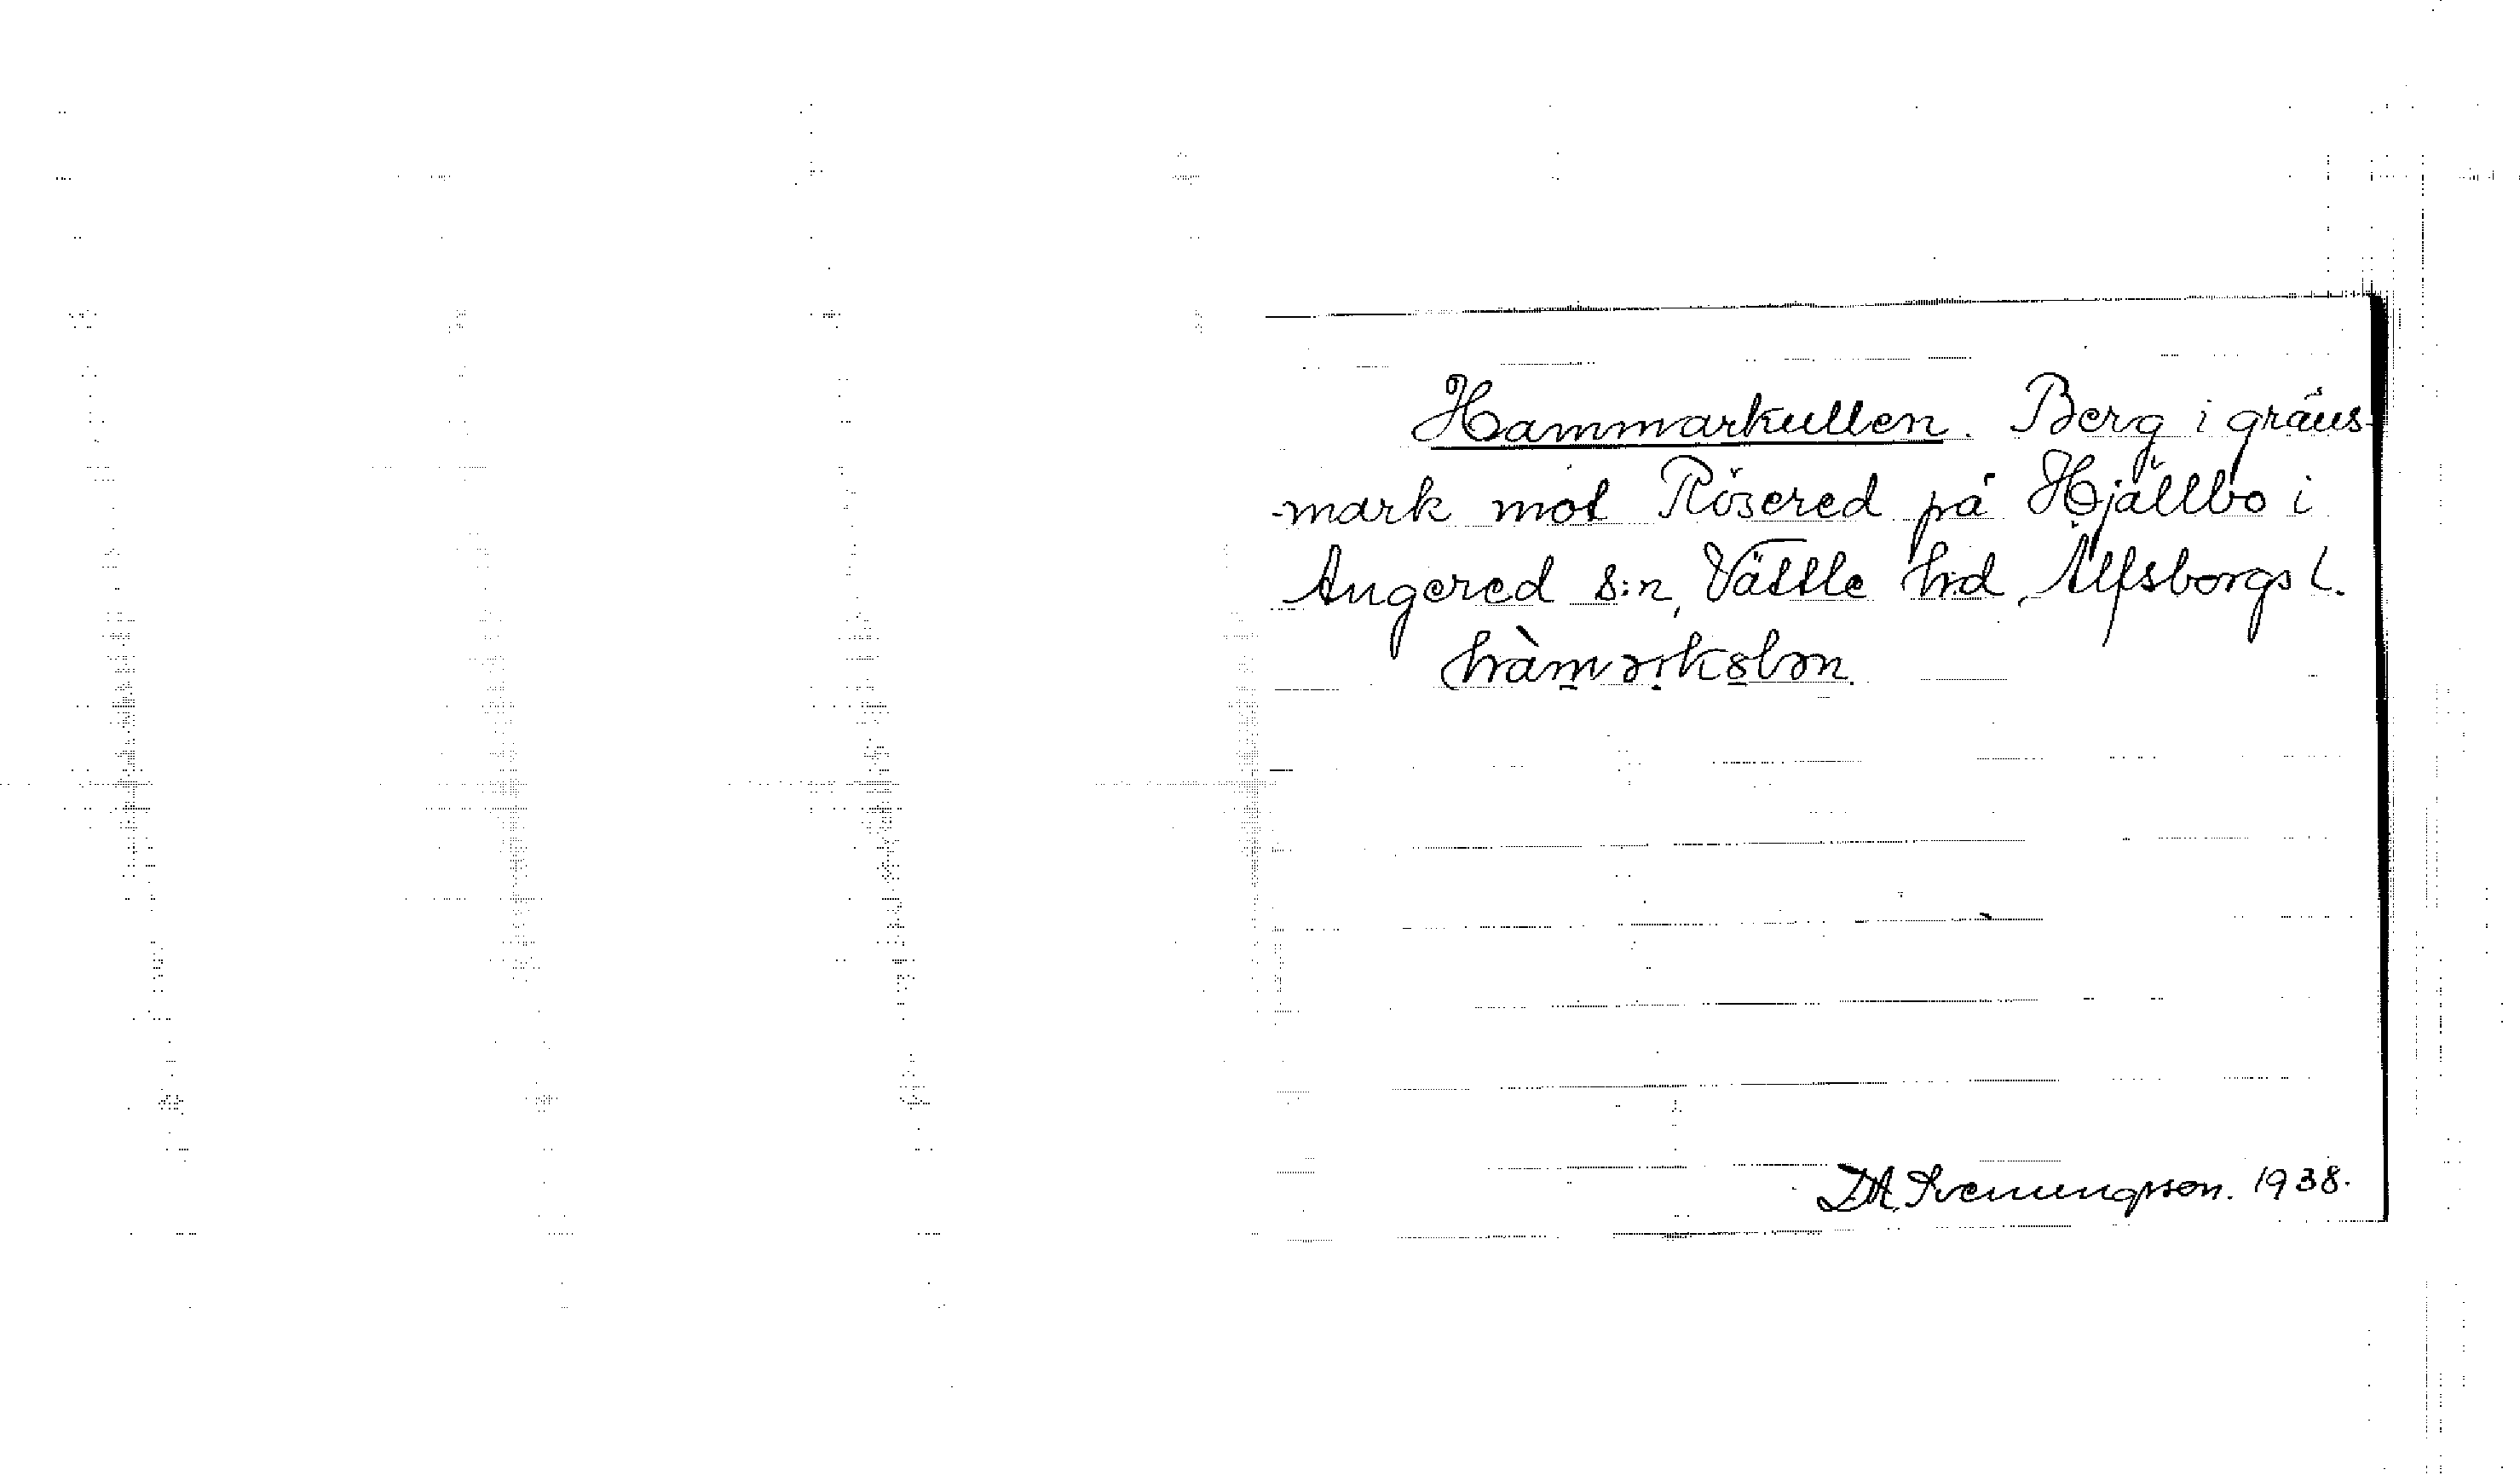 Hammarkullen. Berg i gräns-
-mark mot Rösered på Hjällbo i
Angered s:n, Vättle hd, Älfsborgs l.
D.A. Svenungsson. 1938.